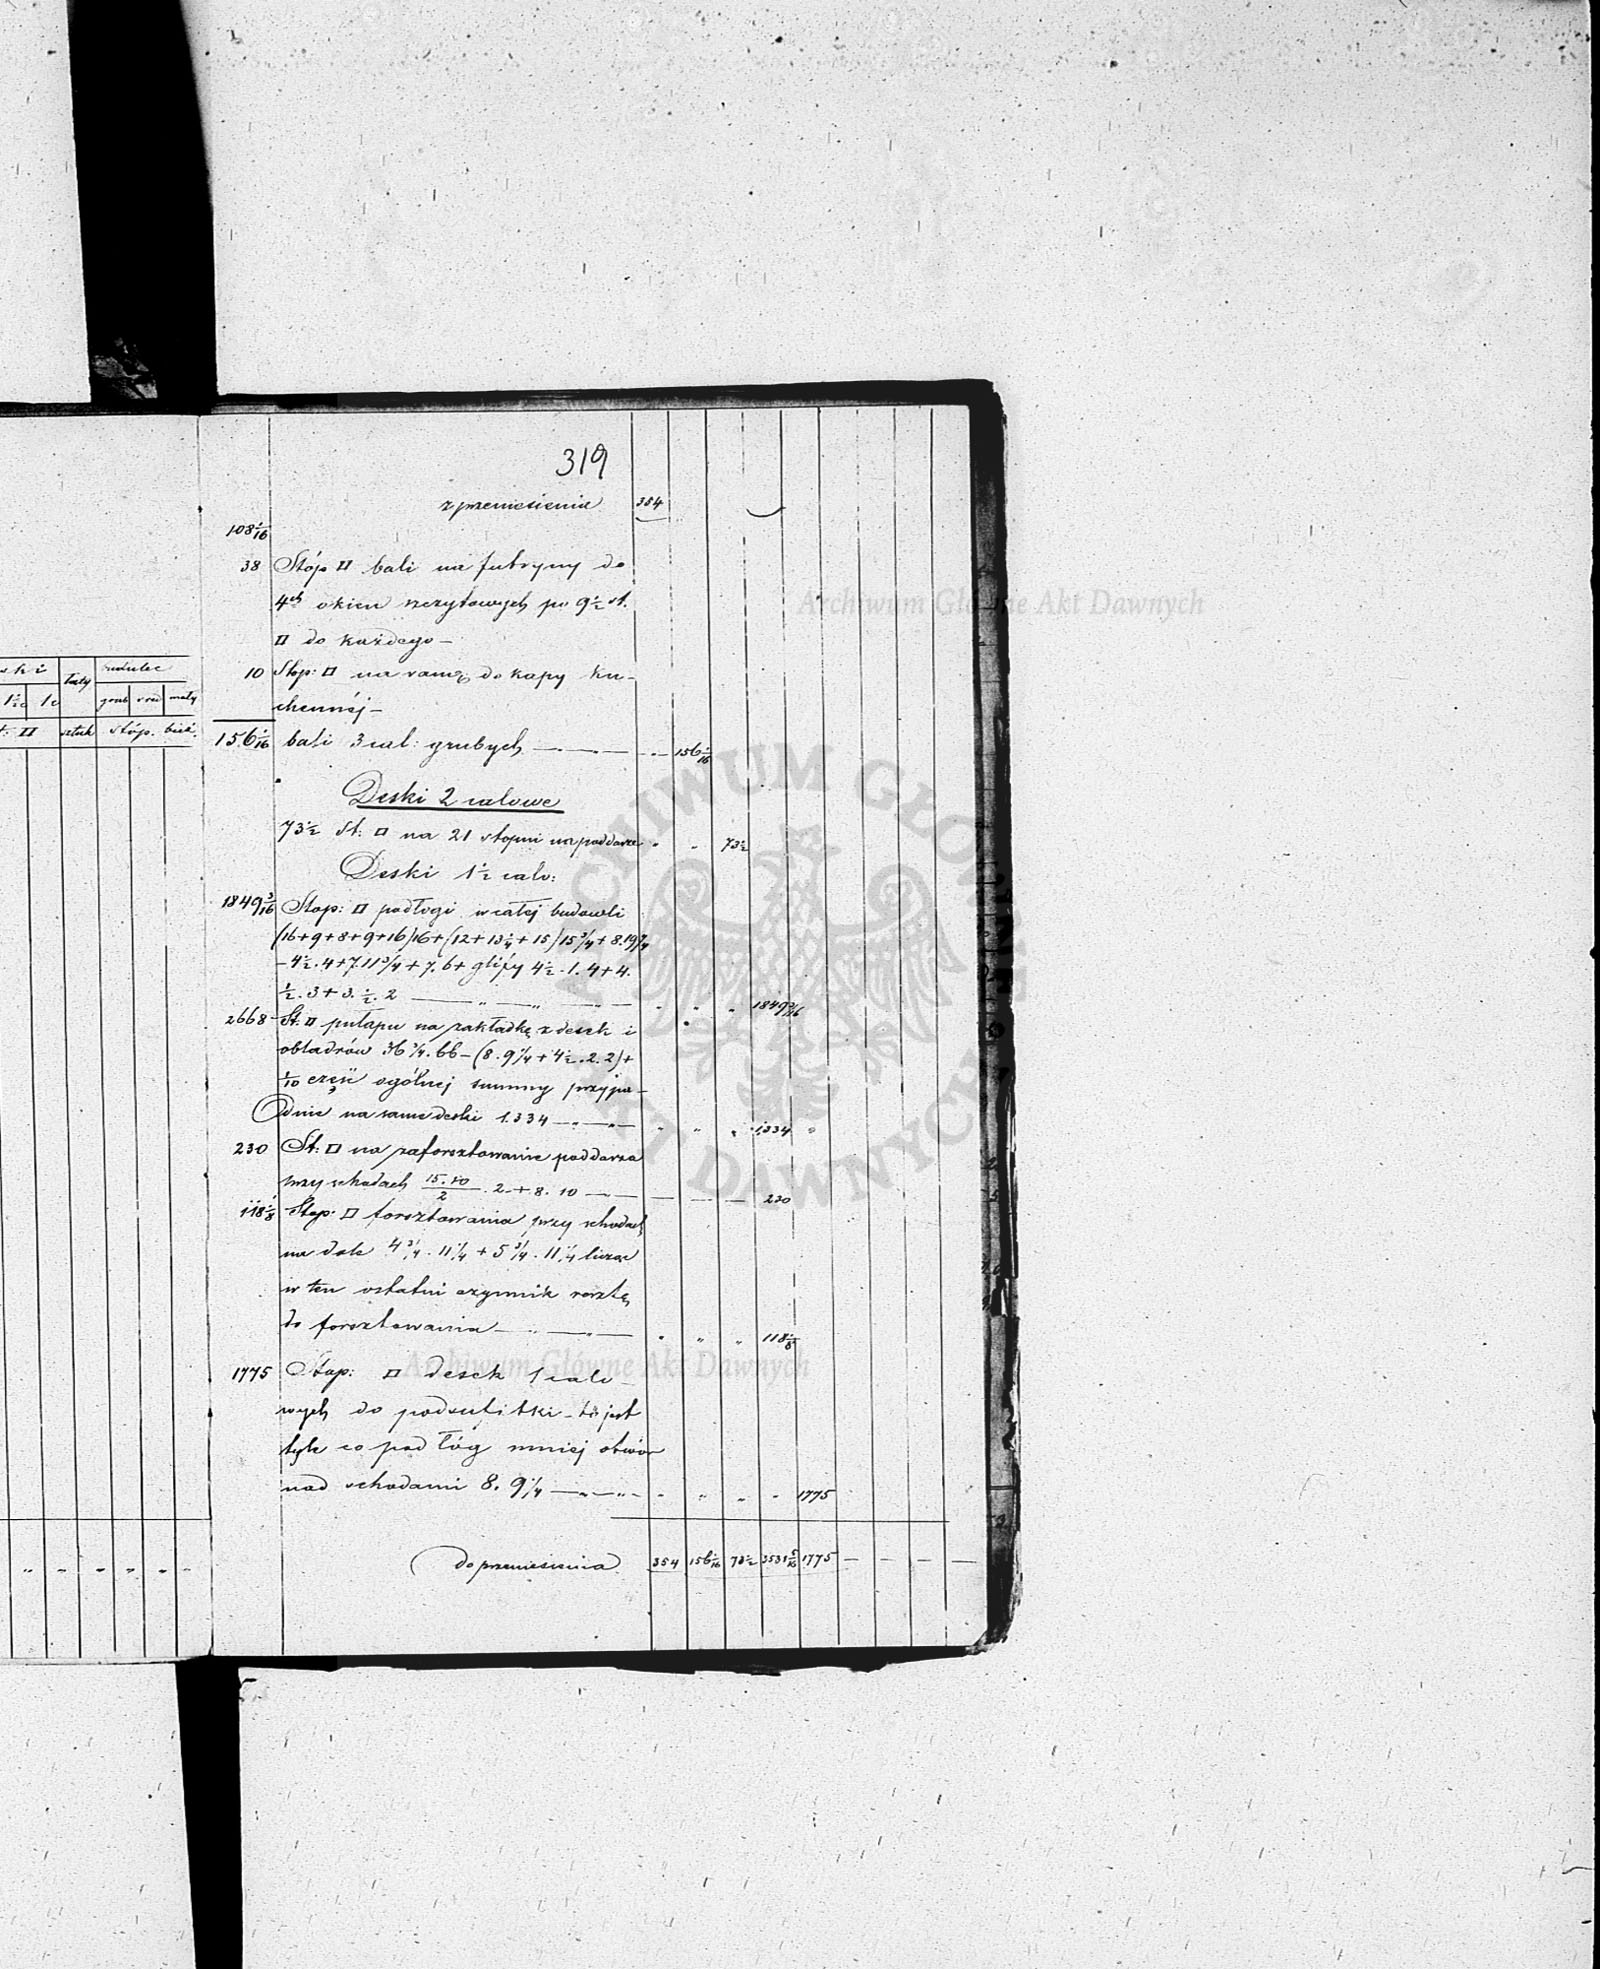 319
z przeniesienia 354
108 1/16
38 Stóp □ bali na futryny do
4ch okien szczytowych po 9 1/2 st.
□ do każdego –
10 Stop: □ na ramę do kapy ku-
chennéj –
156 1/16 bali 3 cal: grubych 156 1/16
Deski 2 calowe
73 1/2 St: □ na 21 stopni na poddasze " " 73 1/2
Deski 1 1/2 calo:
1849 3/16 Stop: □ podłogi w całej budowli
(16+9+8+9+16)16+(12+13 1/4+15)15 3/4+8.19 3/4
– 4 1/2.4+7.11 3/4+7.6+glify 4 1/2.1.4+4.
1/2.3+3.1/2.2 " " " 1849 3/16
2668 St. □ pułapu na zakładkę z desek i
obladrów 36 3/4.66–(8.9 1/4+4 1/2.2.2)+
1/10 część ogólnej summy przypa-
dnie na same deski 1334 " " " 1334 "
230 St: □ na zaforsztowanie poddasza
przy schodach 15.10/2.2+8.10 230
118 1/8 Stop: □ forsztowania przy schodach
na dole 4 3/4.11 1/4+5 3/4.11 1/4 licząc
w ten ostatni czynnik resztę
do forsztowania " " " 118 1/8
1775 Stop: □ desek 1 calo-
wych do podsubitki – to jest
tyle co podłóg mniej otwór
nad schodami 8.9 1/4 " " " " 1775
do przeniesienia 354 156 1/16 73 1/2 3531 5/16 1775 – – – –
ski łaty rudulec
1 1/2c 1c grub sred mały
t. □ sztuk Stóp. bież.
" " " " " "
Archiwum Główne Akt Dawnych
Archiwum Główne Akt Dawnych
ARCHIWUM GŁÓWNE AKT DAWNYCH